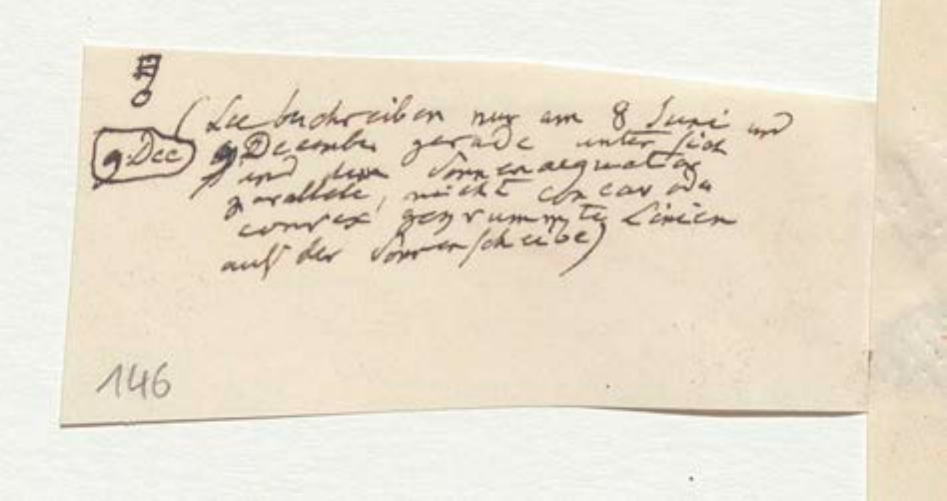 (Sie beschreiben nur am 8 Juni und
9 Dec 9 December gerade unter sich
und dem Sonnenaequator
parallele, nicht concav oder
convex gekrümmte Linien
auf der Sonnenscheibe)
146